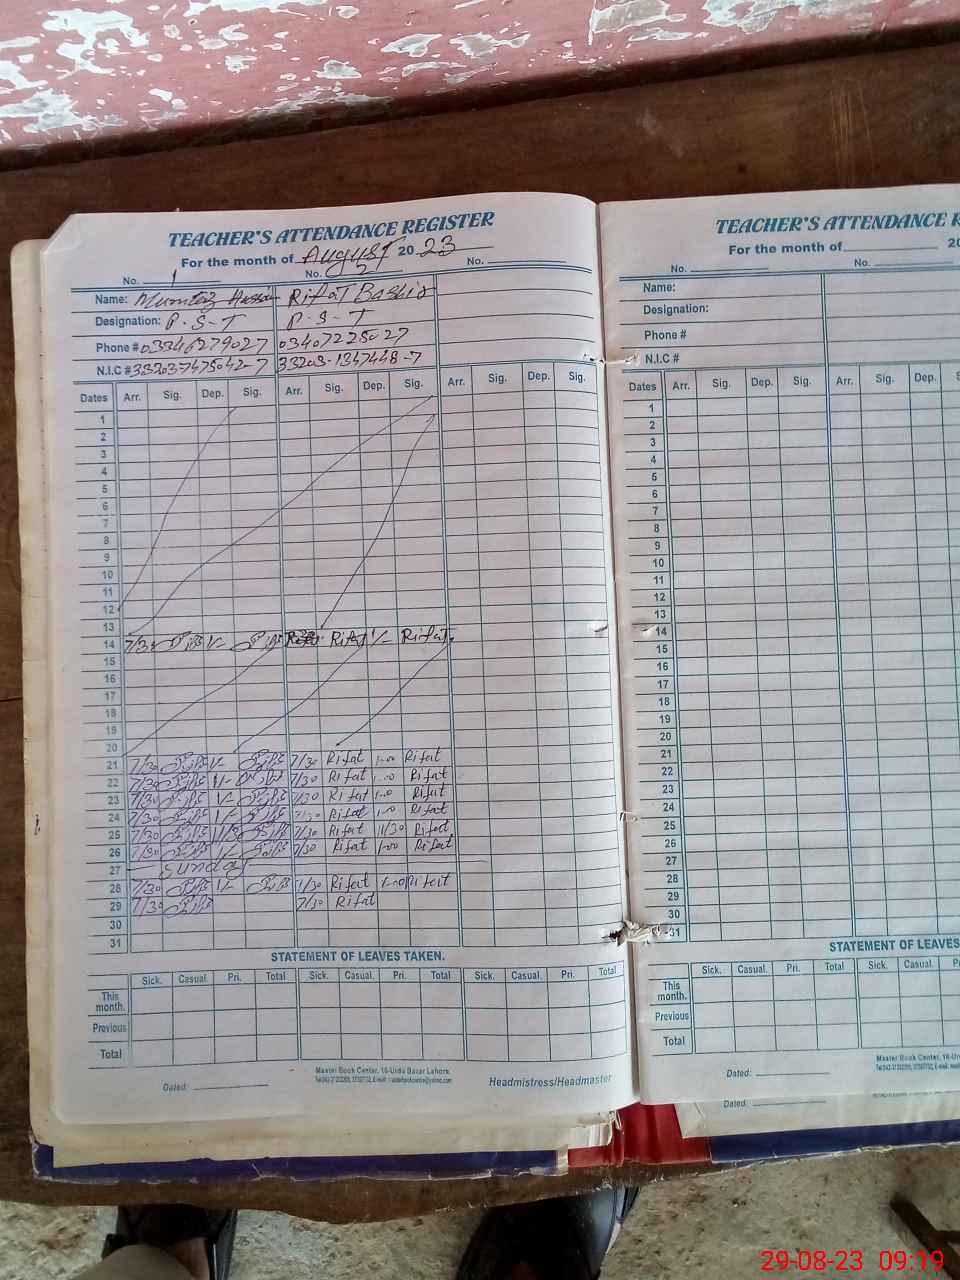 TEACHER'S ATTENDANCE REGISTER
For the month of August 2023
No. 1 No. 2 No.
Name: Mumtaz Hussain Rifat Bashir
Designation: P.S.T P.S.T
Phone # 03346279027 03407225027
N.I.C # 33203-1347448-7
Dates Arr. Sig. Dep. Sig. Arr. Sig. Dep. Sig. Arr. Sig. Dep. Sig.
1
2
3
4
5
6
7
8
9
10
11
12
13
14 7/30 1/- Rifat 1/- Rifat
15
16
17
18
19
20
21 7/30 1/- 7/30 Rifat 1-00 Rifat
22 7/30 1/- 7/30 Rifat 1-00 Rifat
23 7/30 1/- 7/30 Rifat 1-00 Rifat
24 7/30 1/- 7/30 Rifat 1-00 Rifat
25 7/30 11/30 7/30 Rifat 11/30 Rifat
26 7/30 1/- 7/30 Rifat 1-00 Rifat
27 Sunday
28 7/30 1/- 7/30 Rifat 1-00 Rifat
29 7/30 7/30 Rifat
30
31
STATEMENT OF LEAVES TAKEN.
Sick. Casual. Pri. Total Sick. Casual. Pri. Total Sick. Casual. Pri. Total
This month.
Previous
Total
Master Book Center, 16-Urdu Bazar Lahore.
Dated: Headmistress/Headmaster
TEACHER'S ATTENDANCE R
For the month of 20
No. No.
Name:
Designation:
Phone #
N.I.C #
Dates Arr. Sig. Dep. Sig. Arr. Sig. Dep. S
1
2
3
4
5
6
7
8
9
10
11
12
13
14
15
16
17
18
19
20
21
22
23
24
25
26
27
28
29
30
31
STATEMENT OF LEAVES
Sick. Casual. Pri. Total Sick. Casual. P
This month.
Previous
Total
Master Book Center, 16-Ur
Dated:
Dated:
29-08-23 09:19